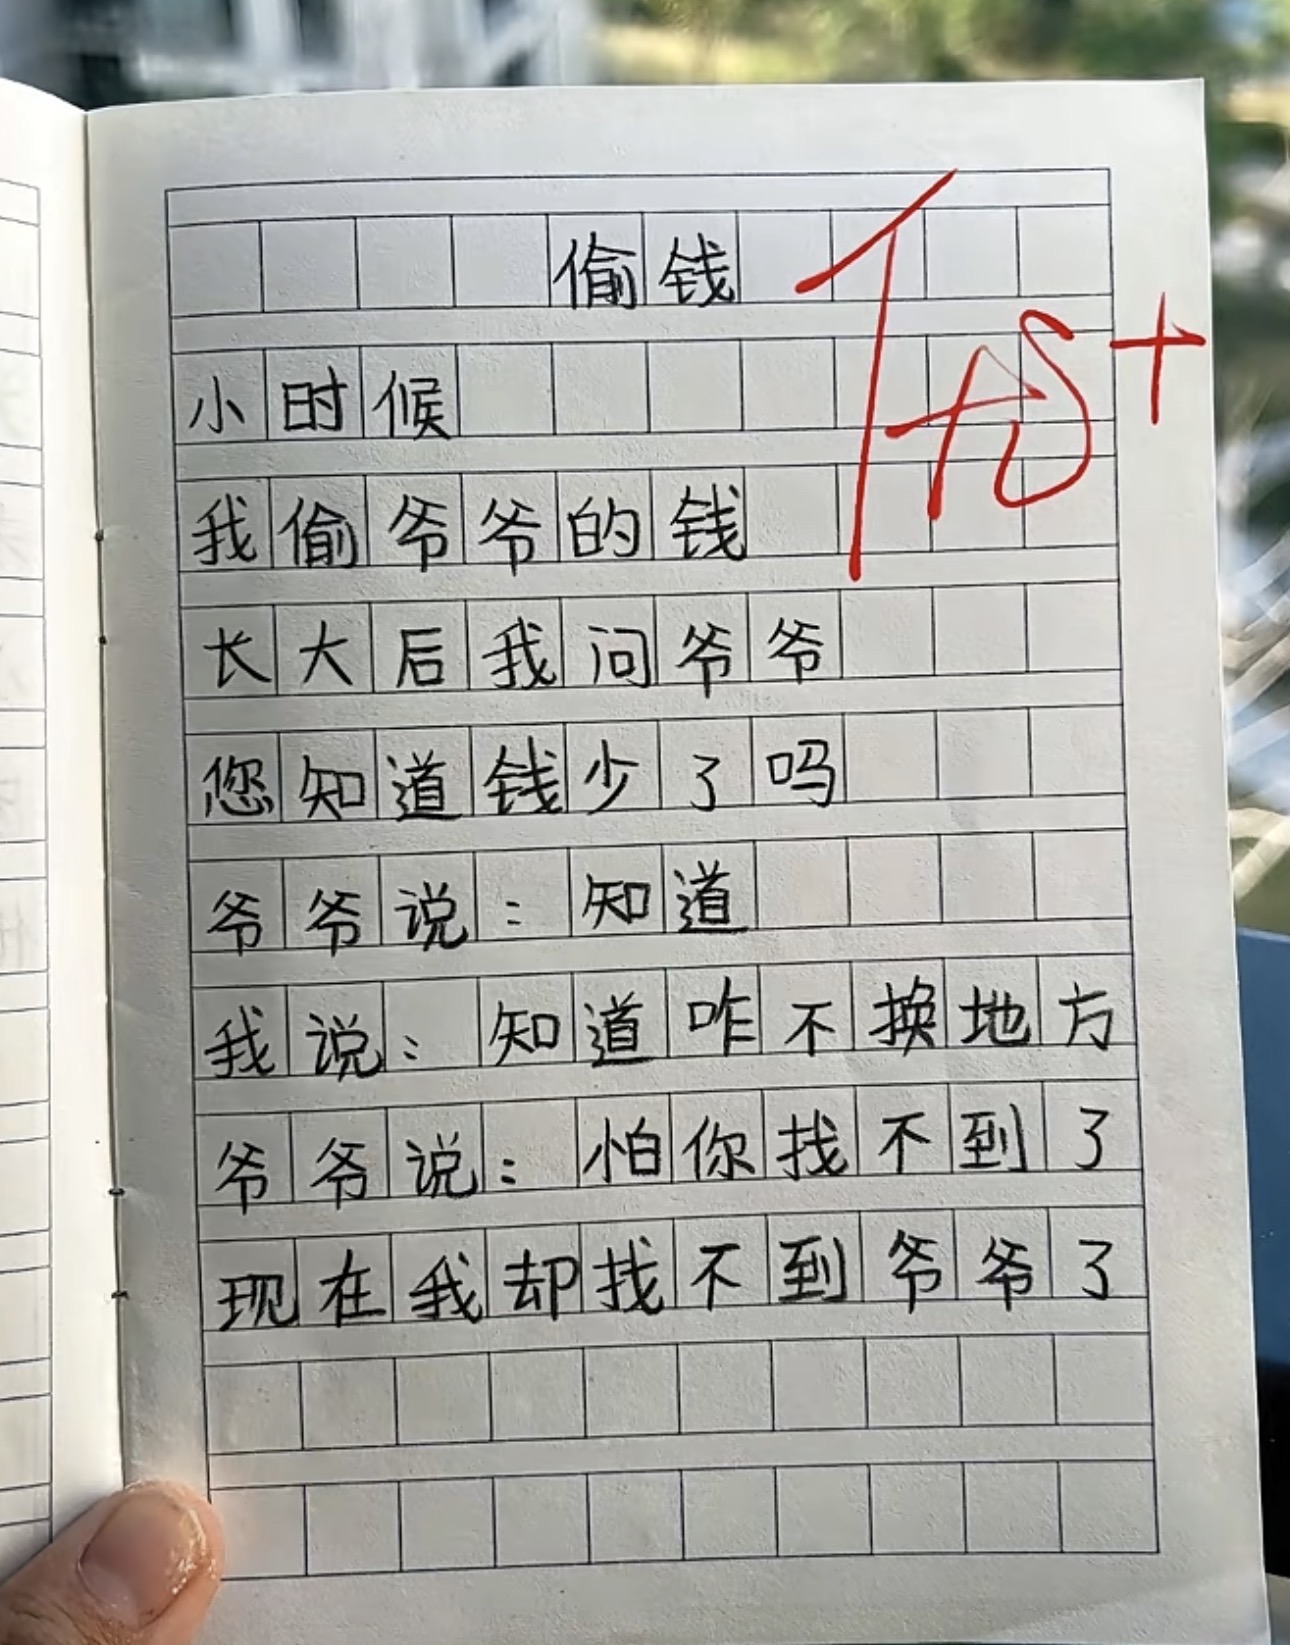 偷钱
小时候
我偷爷爷的钱
长大后我问爷爷
您知道钱少了吗
爷爷说：知道
我说：知道咋不换地方
爷爷说：怕你找不到了
现在我却找不到爷爷了